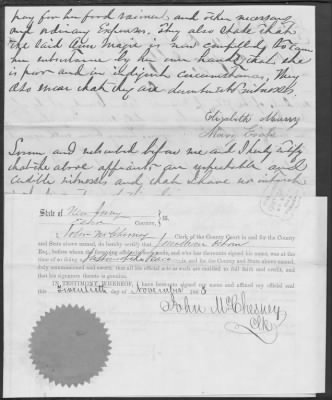 pay for her food raiment and other necessary
and ordinary Expenses. They also state that
the said Ann Magie is now compelled to earn
her subsistance by her own hands, that she
is poor and in indigent circumstances, They
also swear that they are disinterested witnesses.
Elizabeth Winans
Mary
Sworn and subscribed before me and I hereby certify
that the above affiants are respectable and
credible witnesses and that I have no interest
State of New Jersey
Essex County, } ss.
I, John McChesney, Clerk of the County Court in and for the County
and State above named, do hereby certify that Jonathan Osborn
Esq., before whom the foregoing was made, and who has thereunto signed his name, was at the
time of so doing a Justice of the Peace in and for the County and State above named,
duly commissioned and sworn; that all his official acts as such are entitled to full faith and credit, and
that his signature thereto is genuine.
IN TESTIMONY WHEREOF, I have hereunto signed my name and affixed my official seal
this Twentieth day of November 186
John McChesney
Clk